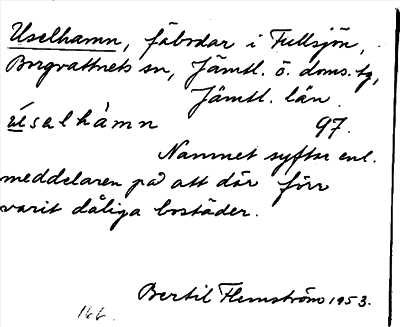 Uselhamn, fäbodar i Fullsjön,
Borgvattnets sn, Jämtl. ö. doms. tg,
Jämtl. län.
ùsalhámn 97.
Namnet syftar enl.
meddelaren på att där förr
varit dåliga bostäder.
Bertil Flemström 1953.
166.